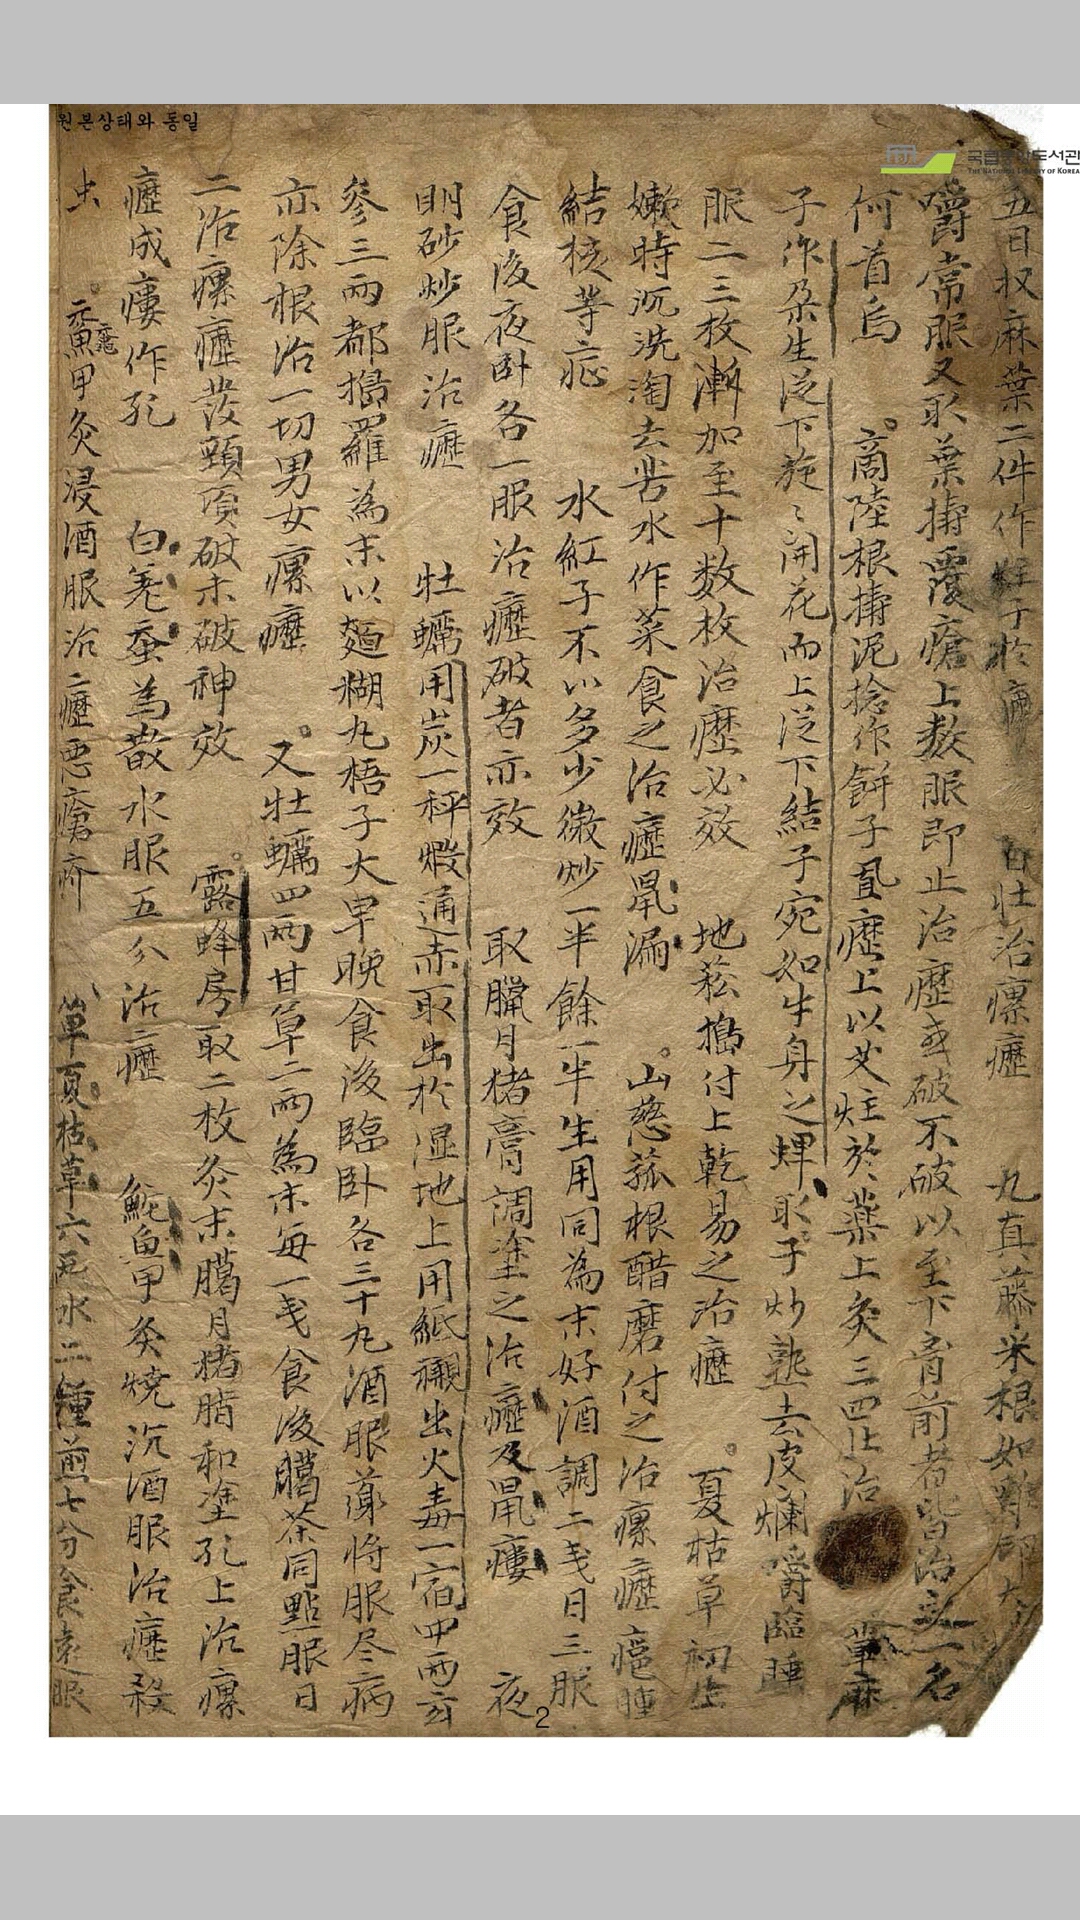 원본상태와 동일
국립중앙도서관
THE NATIONAL LIBRARY OF KOREA
五日収麻葉二件作炷子於 百壮治瘰癧 九真藤米根如雞卵大
嚼常服又取葉搗覆瘡上数服即止治癧或破不破以至下胷前者皆治之一名
何首烏 商陸根搗泥捻作餅子置癧上以艾炷於薬上灸三四壮治 萆麻
子作朶生泛下旋〻開花而上泛下結子宛如牛身之蜱取子炒熟去皮爛嚼臨睡
服二三枚漸加至十数枚治癧必效 地菘搗付上乾易之治癧 夏枯草初生
嫩時沉洗淘去苦水作菜食之治癧鼠漏 山慈菰根醋磨付之治瘰癧瘧腫
結核等症 水紅子不以多少微炒一半餘一半生用同為末好酒調二戔日三服
食後夜卧各一服治癧破者亦效 取臘月猪膏調塗之治癧及鼠瘻 夜
明砂炒服治癧 牡蠣用炭一秤煅通赤取出於湿地上用紙襯出火毒一宿四兩玄
參三兩都搗羅為末以麵糊丸梧子大早晚食後臨卧各三十丸酒服藥將服尽病
亦除根治一切男女瘰癧 又牡蠣四兩甘草二兩為末每一戔食後臈茶同點服日
二治瘰癧發頸項破未破神效 露蜂房取二枚灸末臈月猪脂和塗孔上治瘰
癧成瘻作孔 白僵蚕為散水服五分治癧 鮀魚甲灸燒沉酒服治癧殺
虫 黿甲灸浸酒服治癧惡瘡疥 單夏枯草六兩水二鍾煎七分食遠服
2